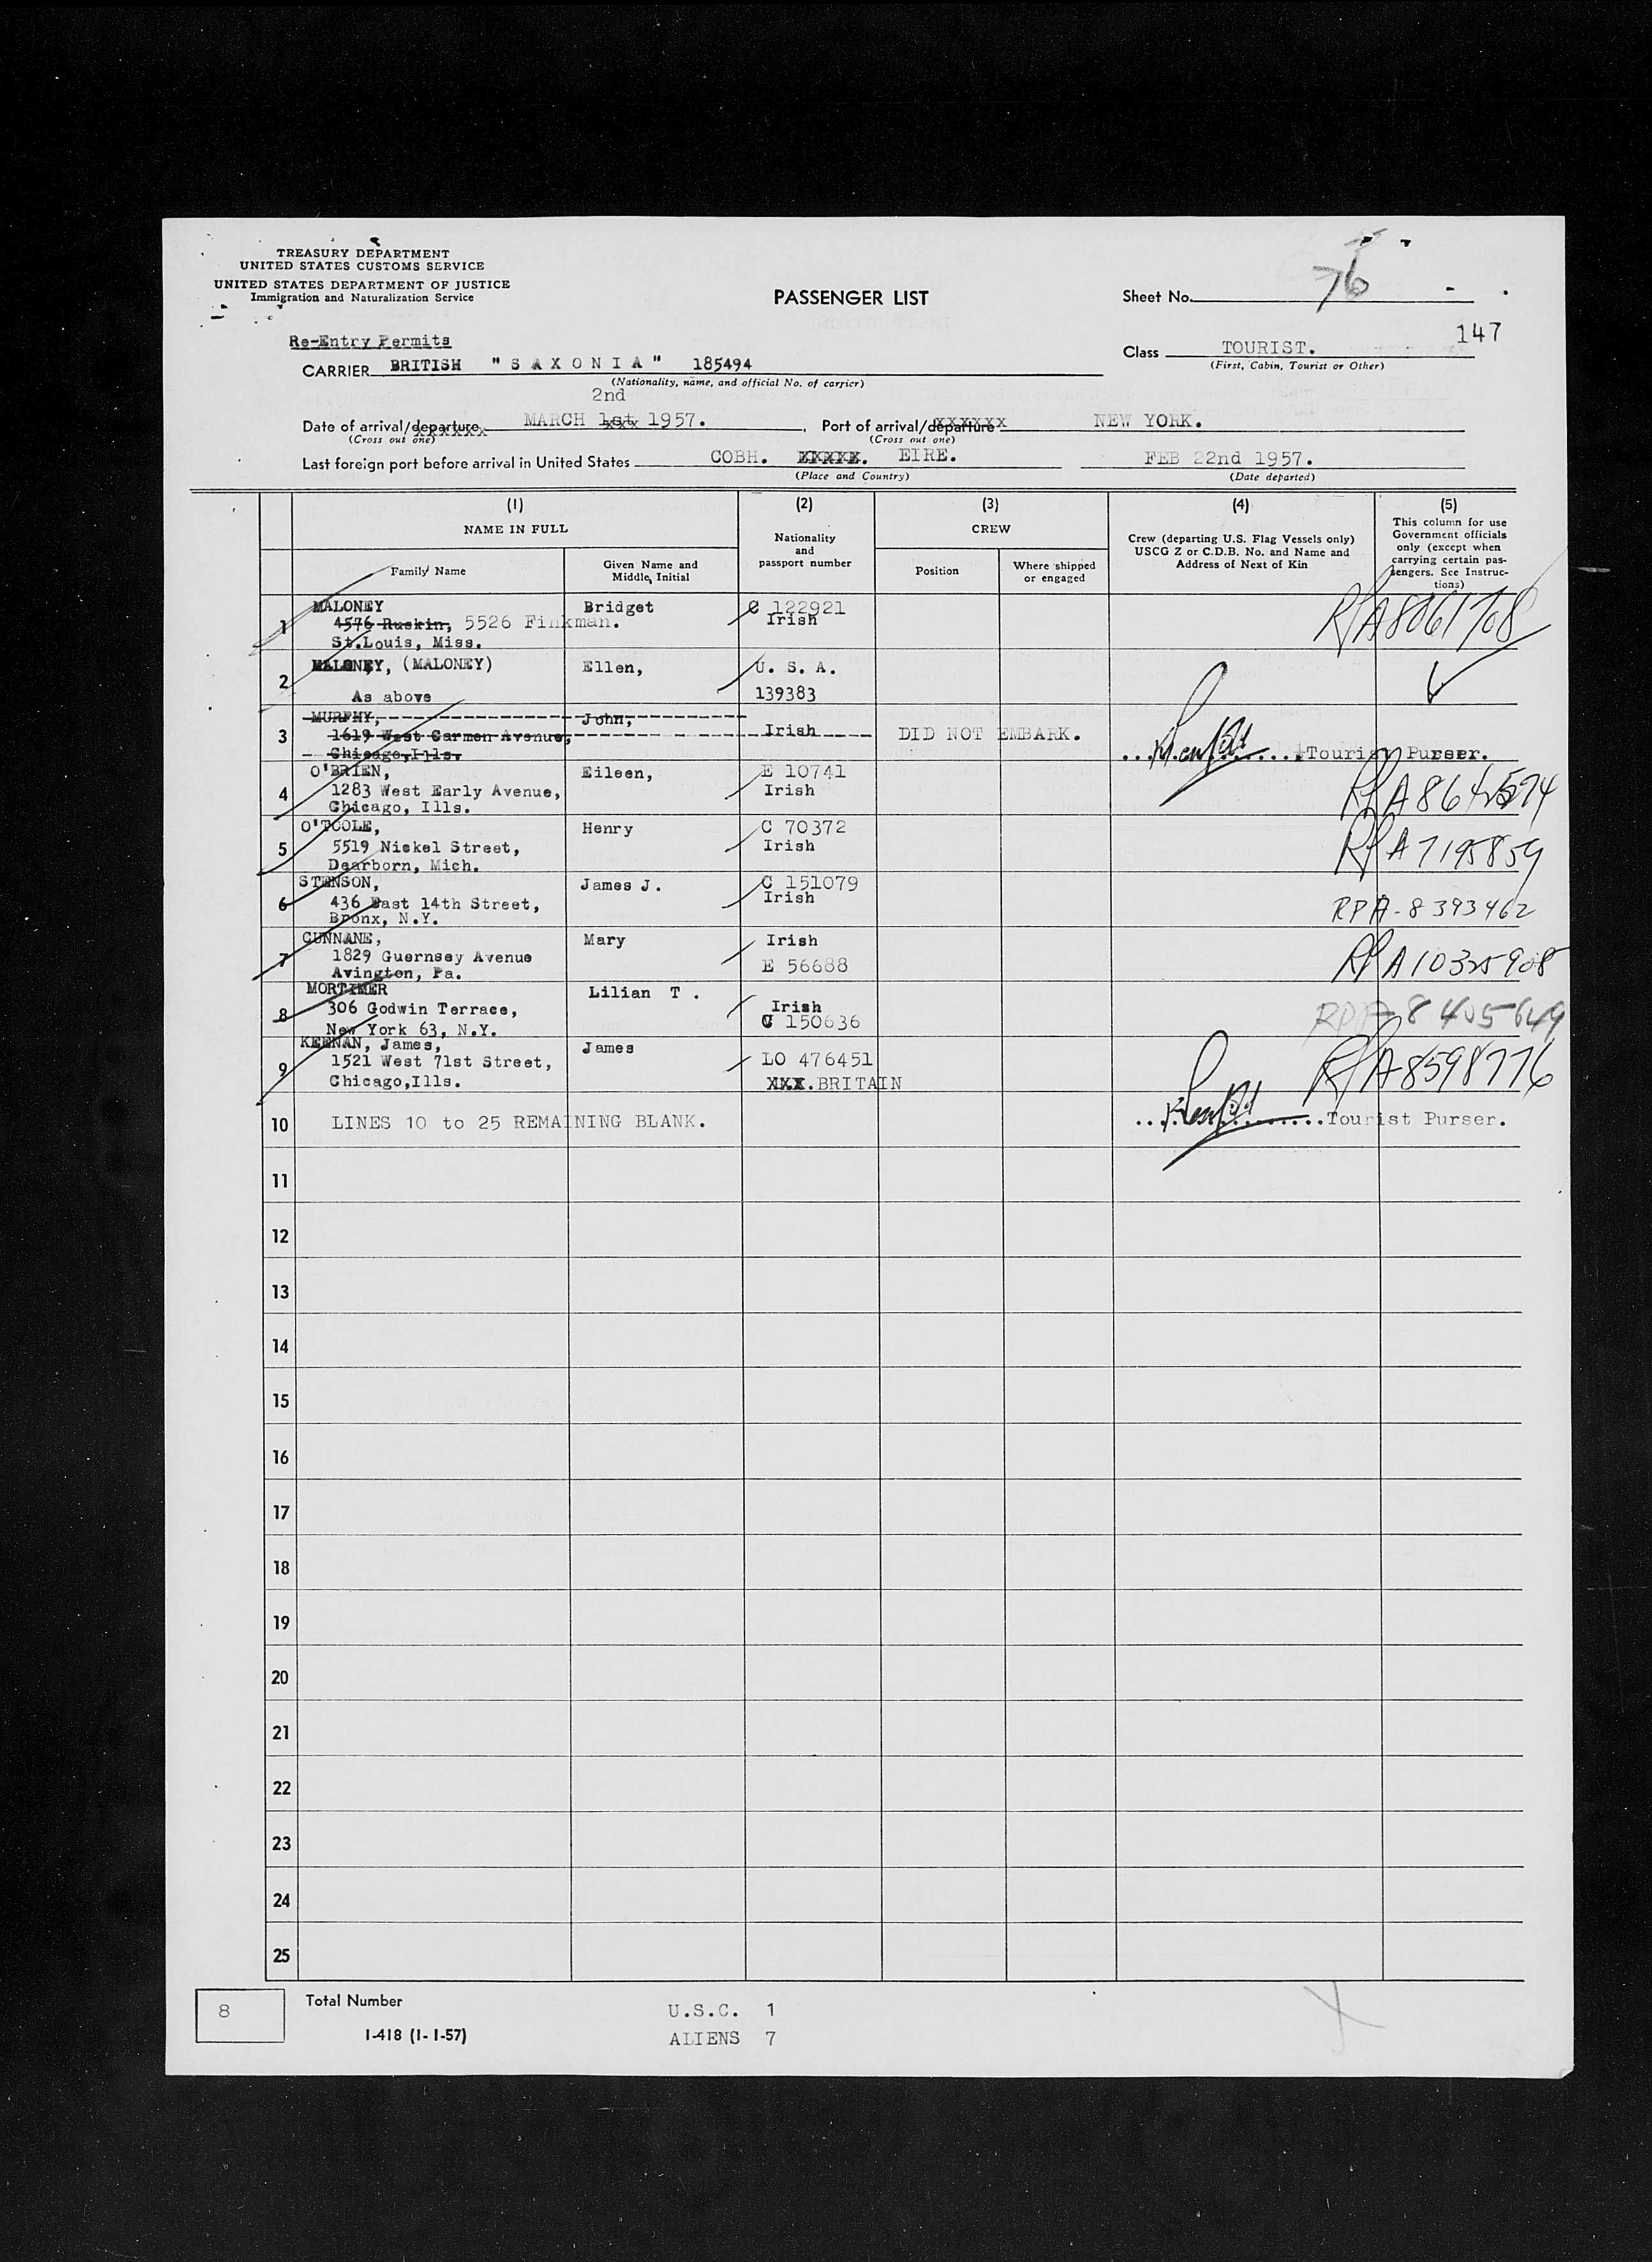 TREASURY DEPARTMENT
UNITED STATES CUSTOMS SERVICE
UNITED STATES DEPARTMENT OF JUSTICE
Immigration and Naturalization Service
PASSENGER LIST
Sheet No. 76
147
Re-Entry Permits
CARRIER BRITISH "SAXONIA" 185494
(Nationality, name, and official No. of carrier)
Class TOURIST.
(First, Cabin, Tourist or Other)
2nd
Date of arrival/departure MARCH 1st 1957. Port of arrival/departure NEW YORK.
(Cross out one) (Cross out one)
Last foreign port before arrival in United States COBH. EIRE. FEB 22nd 1957.
(Place and Country) (Date departed)
(1) (2) (3) (4) (5)
NAME IN FULL
Family Name
Given Name and Middle Initial
Nationality and passport number
CREW
Position
Where shipped or engaged
Crew (departing U.S. Flag Vessels only) USCG Z or C.D.B. No. and Name and Address of Next of Kin
This column for use Government officials only (except when carrying certain passengers. See Instructions)
1 MALONEY Bridget C 122921 RPA8061708
4576 Ruskin, 5526 Finkman. Irish
St.Louis, Miss.
2 MALONEY, (MALONEY) Ellen, U. S. A.
As above 139383
3 MURPHY, John, Irish DID NOT EMBARK. Tourist Purser.
1619 West Carmen Avenue,
Chicago, Ills.
4 O'BRIEN, Eileen, E 10741
1283 West Early Avenue, Irish
Chicago, Ills.
5 O'TOOLE, Henry C 70372 RPA7195859
5519 Nickel Street, Irish
Dearborn, Mich.
6 STENSON, James J. C 151079 RPA-8393462
436 East 14th Street, Irish
Bronx, N.Y.
7 CUNNANE, Mary Irish RPA10325908
1829 Guernsey Avenue E 56688
Avington, Pa.
8 MORTIMER Lilian T. Irish RPA-8405649
306 Godwin Terrace, C 150636
New York 63, N.Y.
9 KEENAN, James, James LO 476451 RPA8598776
1521 West 71st Street, XXX.BRITAIN
Chicago,Ills.
10 LINES 10 to 25 REMAINING BLANK. Tourist Purser.
11
12
13
14
15
16
17
18
19
20
21
22
23
24
25
8 Total Number U.S.C. 1
I-418 (1-1-57) ALIENS 7